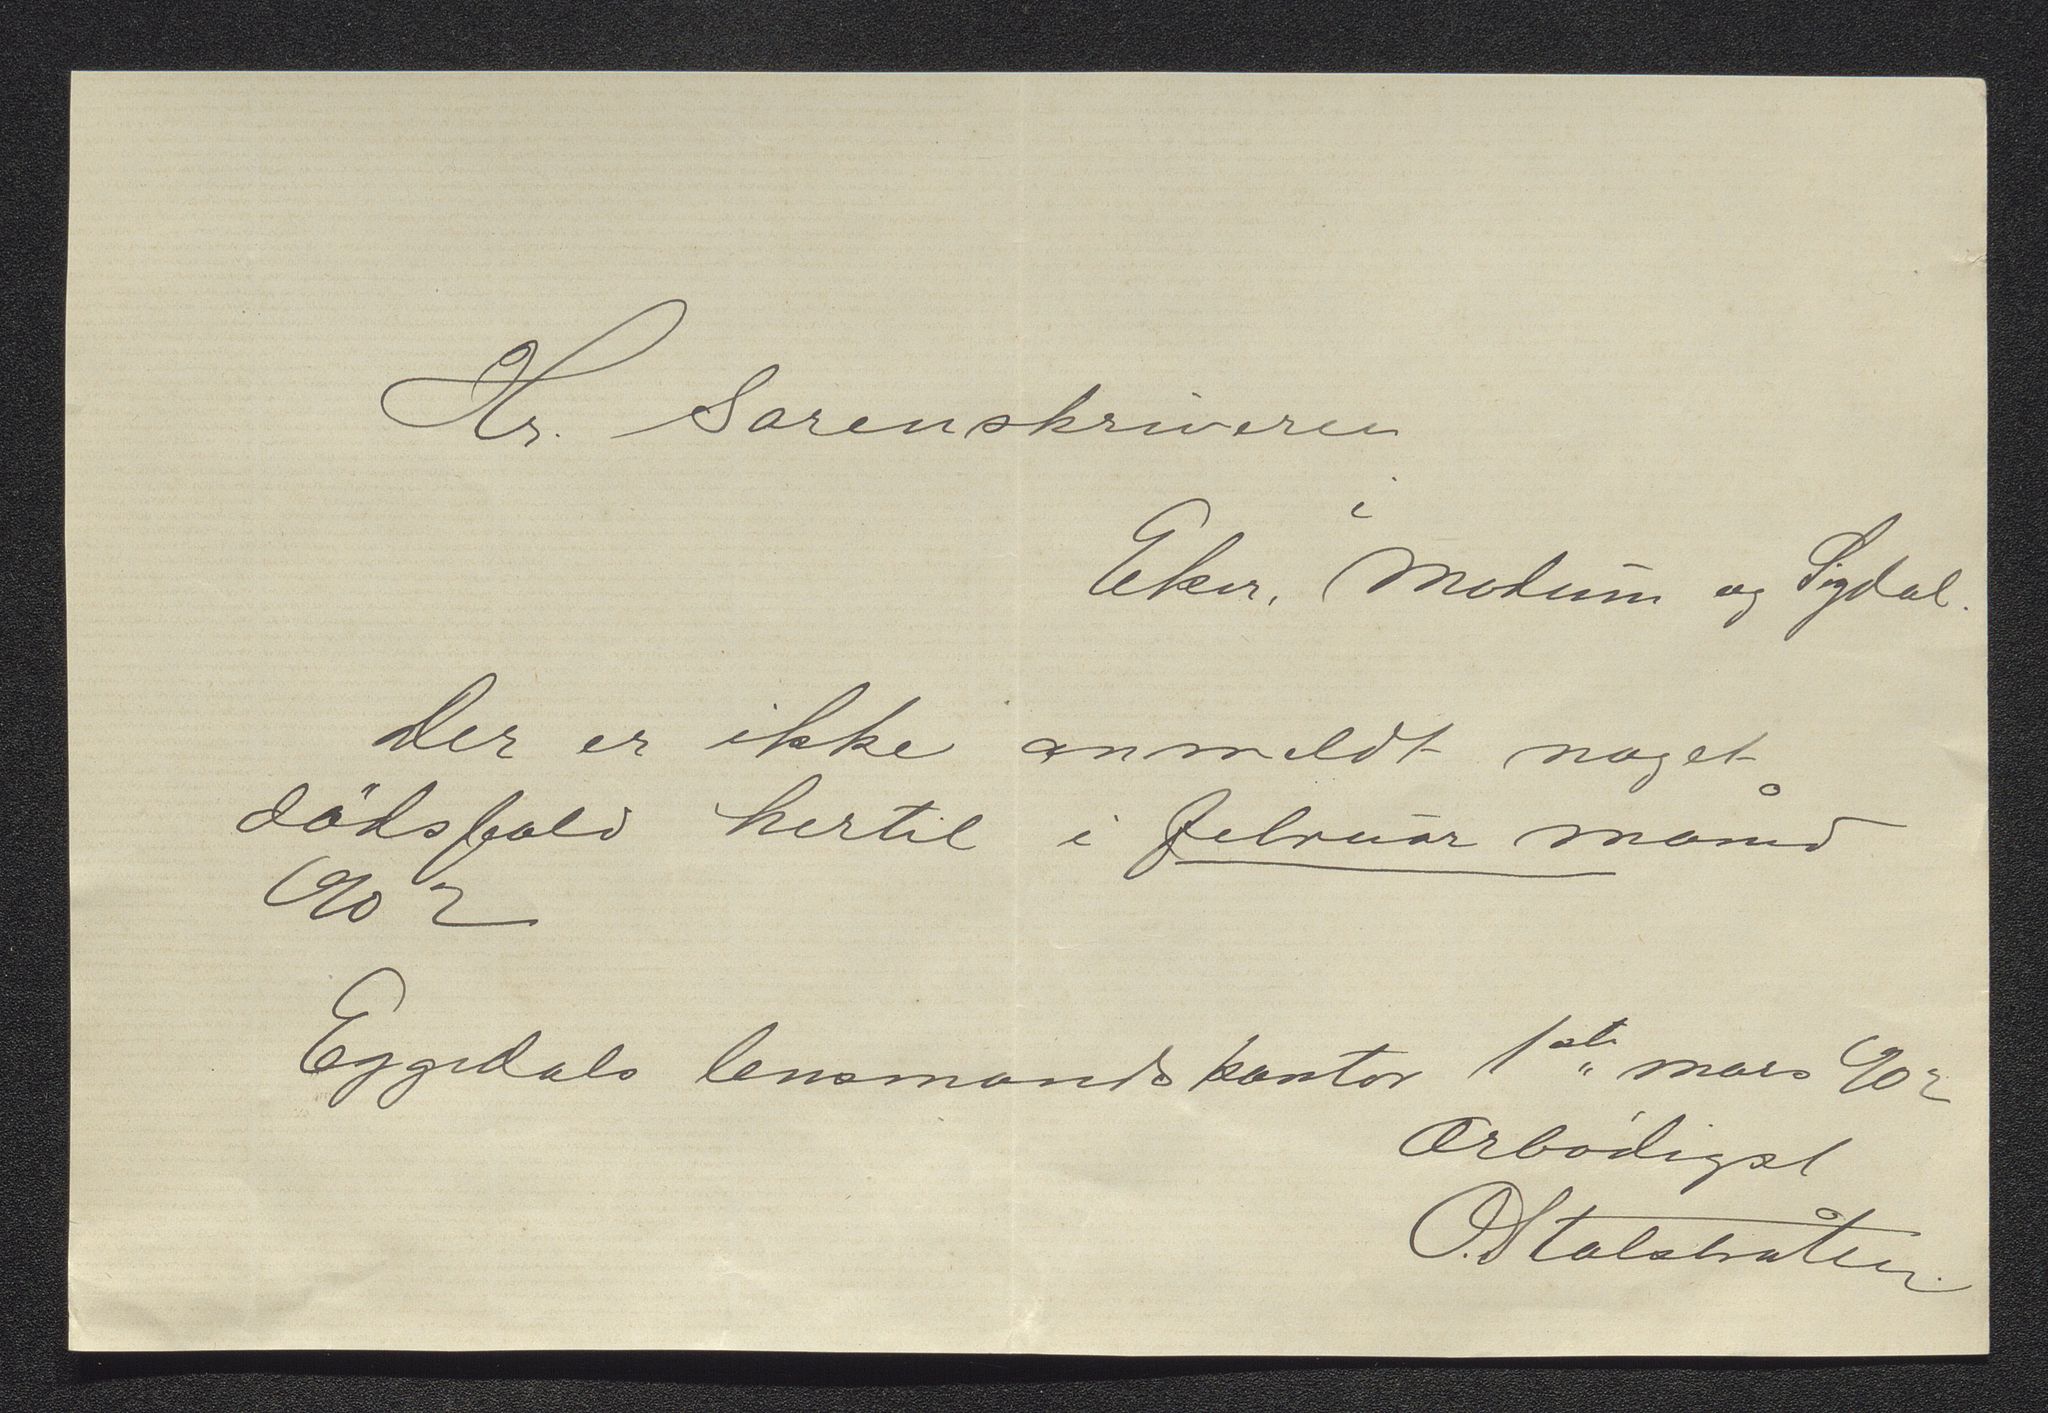 Hr. Sorenskriveren
i
Eker, Modum og Sigdal.
Der er ikke anmeldt noget
dödsfald hertil i februar månd
902
Eggedals lensmandskontor 1ste mars 902
Ærbödigst
O. Stalsbråten.